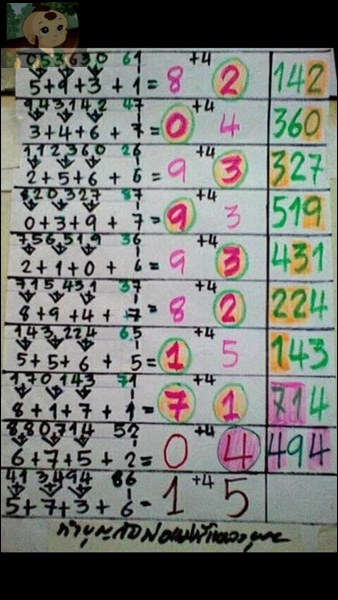 053630 61 +4
5+9+3+1=8 2 142
943142 47 +4
3+4+6+7=0 4 360
112360 26 +4
2+5+6+6=9 3 327
820327 87 +4
0+3+9+7=9 3 519
756519 36 +4
2+1+0+6=9 3 431
715431 37 +4
8+9+4+7=8 2 224
143224 65 +4
5+5+6 5=1 5 143
170143 71 +4
8+1+7+1=7 1 714
880714 52 +4
6+7+5+2=0 4 494
413494 86 +4
5+7+3+6=1 5